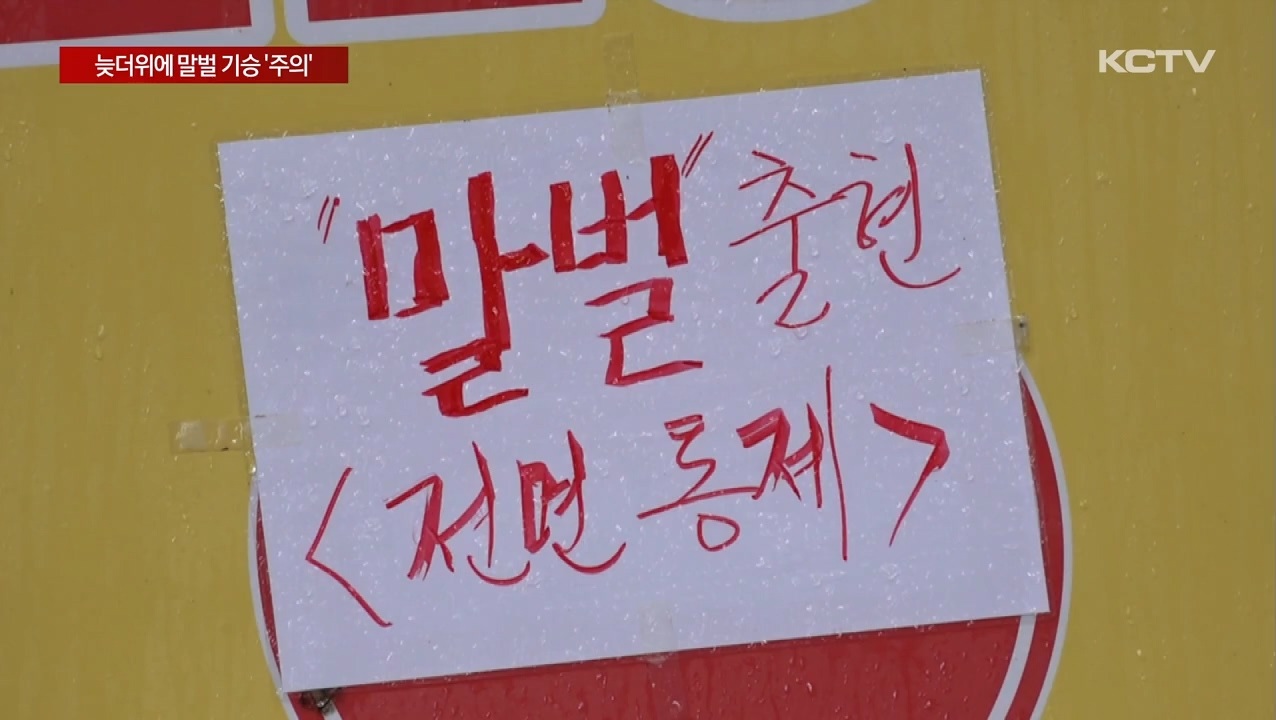 늦더위에 말벌 기승 '주의'
KCTV
"말벌" 출현
<전면 통제>